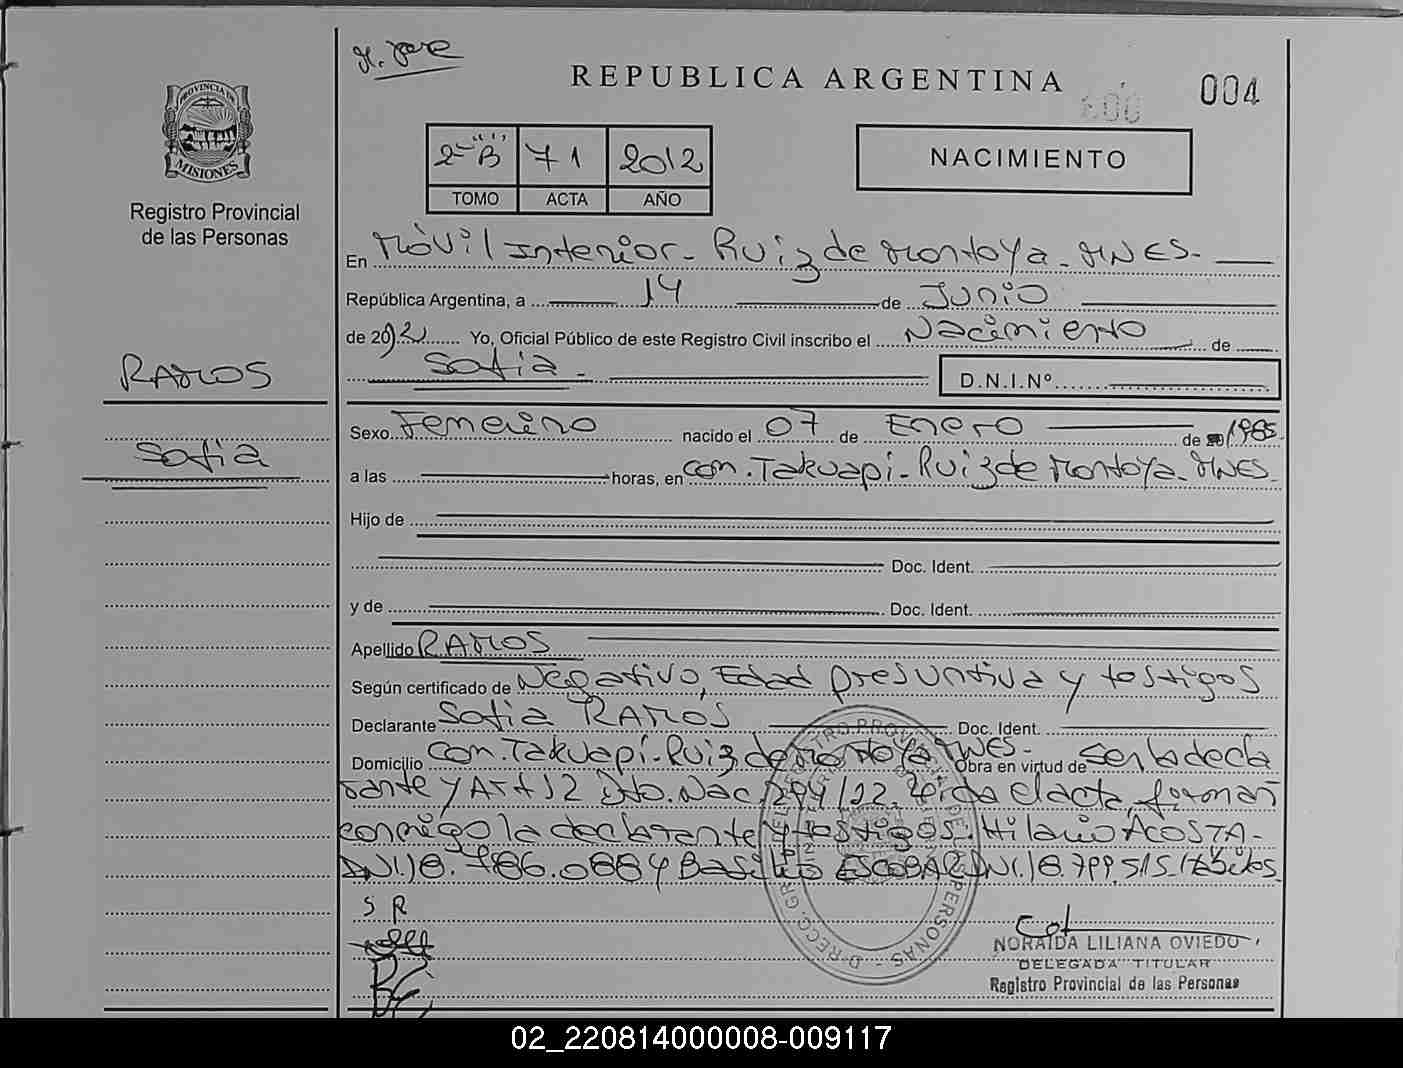 REPUBLICA ARGENTINA
004
PROVINCIA DE
MISIONES
Registro Provincial
de las Personas
2º "B" 71 2012
TOMO ACTA AÑO
NACIMIENTO
En Móvil Interior - Ruiz de Montoya - MNES -
República Argentina, a 14 de Junio
de 2012 Yo, Oficial Público de este Registro Civil inscribo el Nacimiento de
Sofia -
D.N.I.Nº
RAMOS
Sofia
Sexo Femenino nacido el 07 de Enero de 1985
a las horas, en com. Takuapi - Ruiz de Montoya - MNES -
Hijo de
Doc. Ident.
y de Doc. Ident.
Apellido RAMOS
Según certificado de Negativo, Edad presuntiva y testigos
Declarante Sofia RAMOS Doc. Ident.
Domicilio com. Takuapi - Ruiz de Montoya MNES - Obra en virtud de ser la decla
rante y Art 12 Dto. Nac. 294/12, leida el acta, firman
conmigo la declarante y testigos. Hilario ACOSTA -
DNI. 18.786.088 y Basilio ESCOBAR DNI. 18.799.515
S R
NORAIDA LILIANA OVIEDO
DELEGADA TITULAR
Registro Provincial de las Personas
02_220814000008-009117